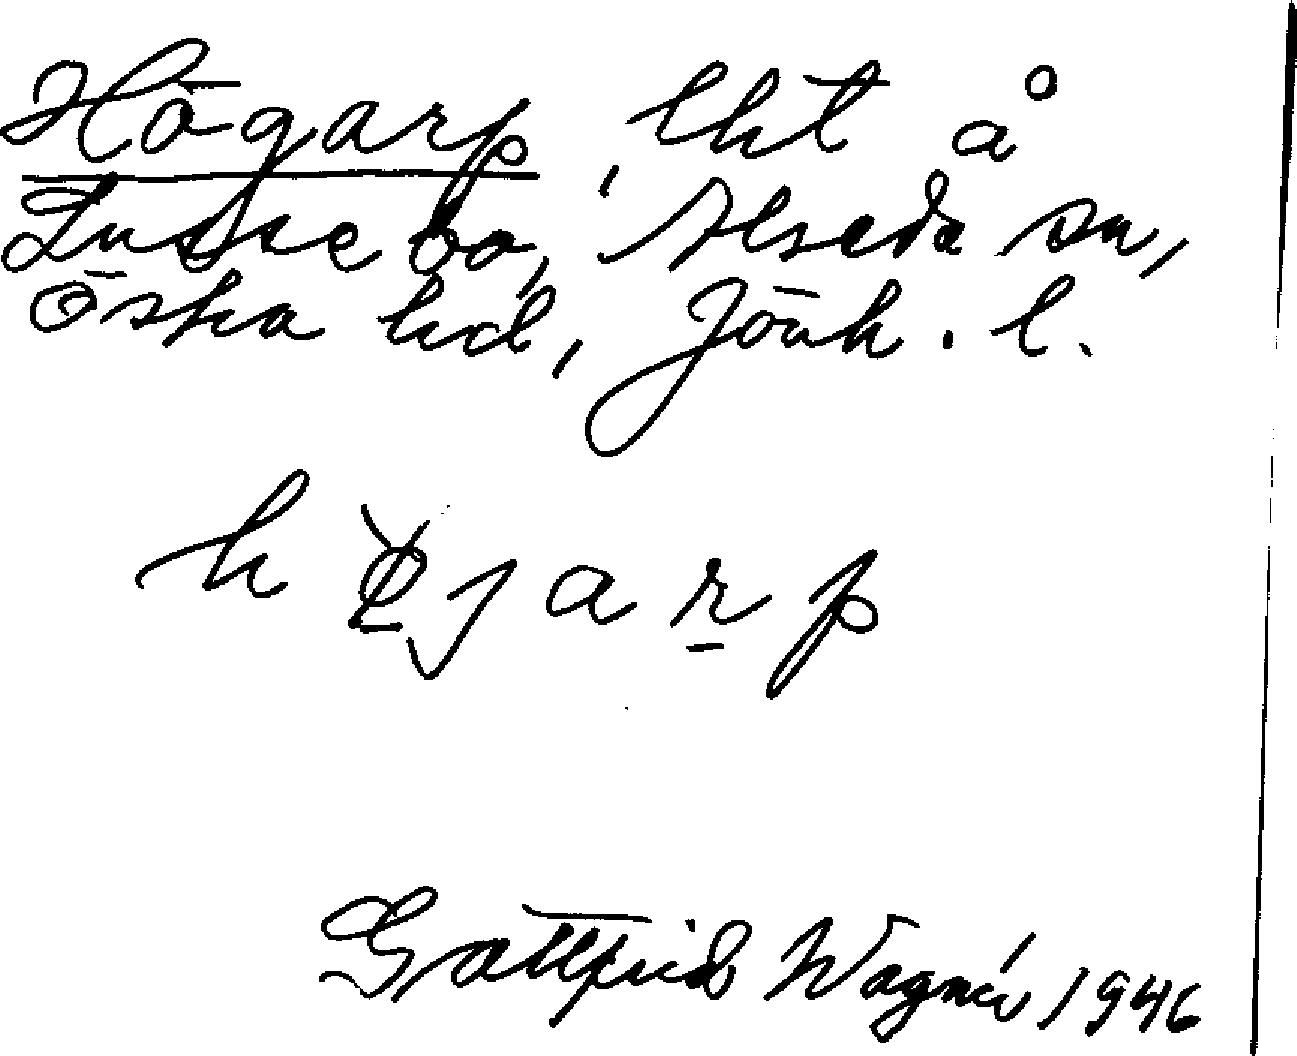 Högarp, lht å
Lussebo, Alseda sn,
Östra hd, Jönk. l.
Gottfrid Wagnér 1946